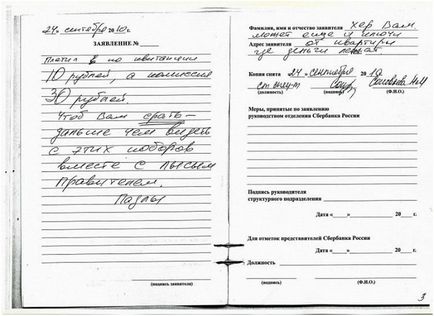 24 сентября 2010 г.
ЗАЯВЛЕНИЕ №
Платил в по квитанции
10 рублей, а комиссия
30 рублей.
Чтоб Вам срать
дальше чем видеть
с этих поборов
вместе с лысым
правителем.
(подпись заявителя)
Фамилия, имя и отчество заявителя Хер Вам,
может еще и ключи
Адрес заявителя от квартиры
где деньги лежат
Копия снята 24 сентября 2010
(должность) (подпись) (Ф.И.О.)
Меры, принятые по заявлению
руководством отделения Сбербанка России
Подпись руководителя
структурного подразделения
Дата «___» 20___ г.
Дата «___» 20___ г.
Для отметок представителей Сбербанка России
Должность
(подпись) (Ф.И.О.)
3